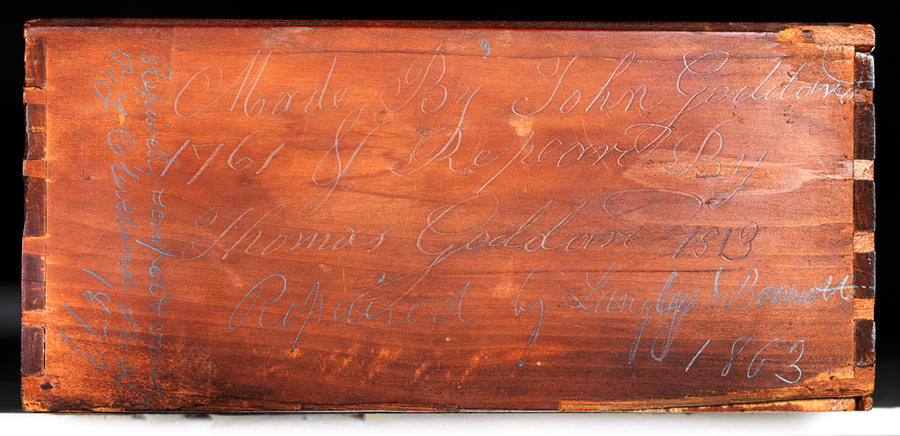 Made By John Goddard
1761 & Repeard By
Thomas Goddard 1813
Repaired by Langley & Bennett
1863
Repaired
By
1877